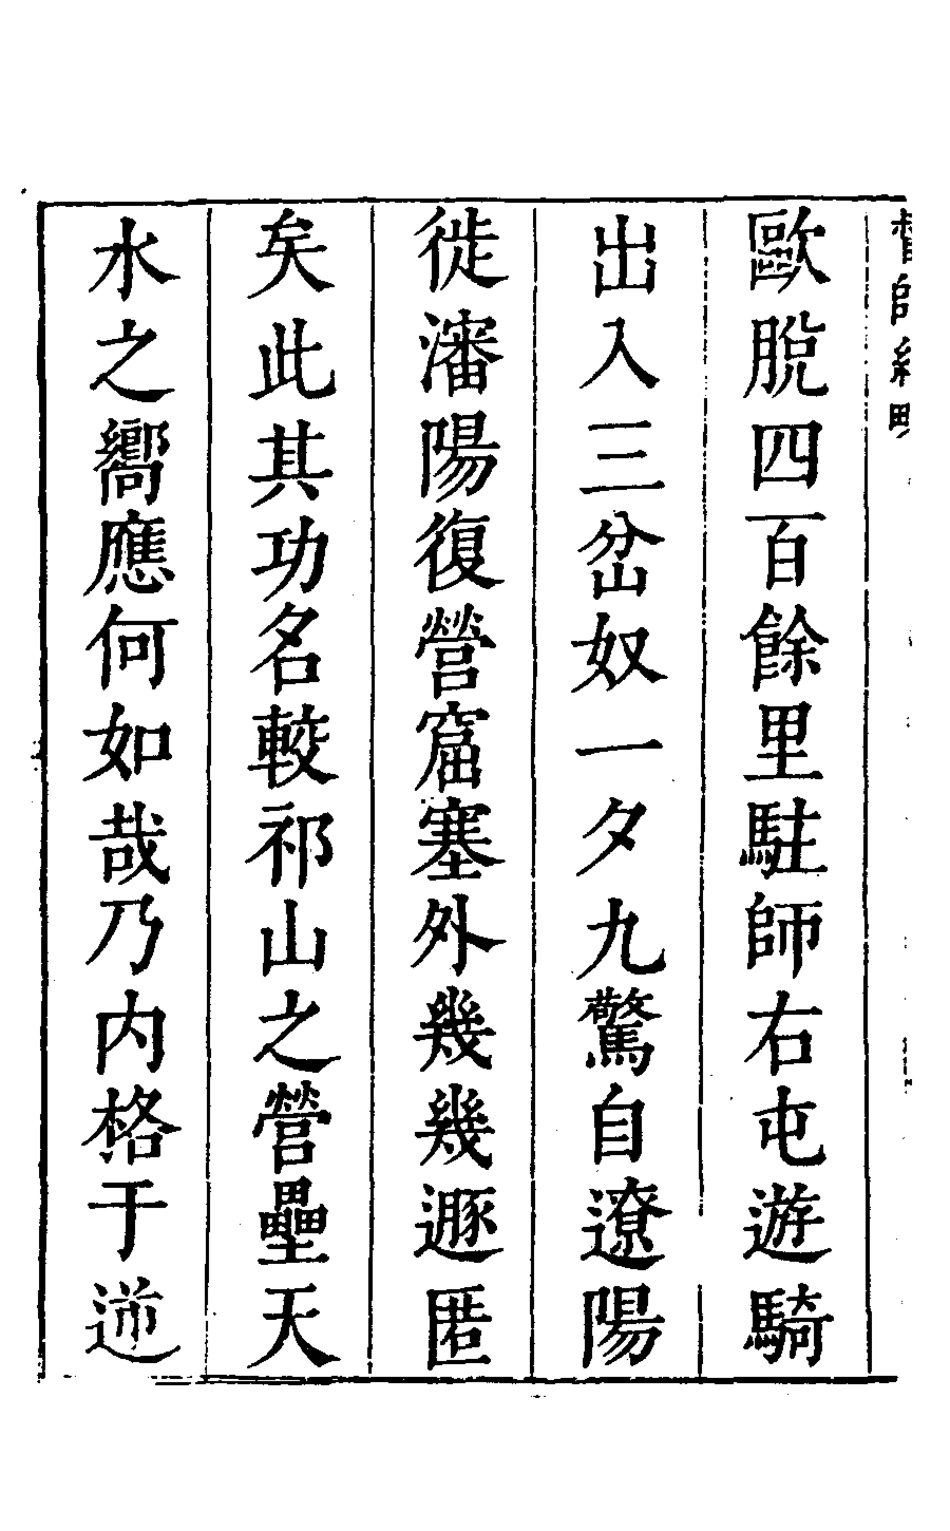 督師紀畧
歐脫四百餘里駐師右屯遊騎
出入三岔奴一夕九驚自遼陽
徙瀋陽復營窟塞外幾幾遯匿
矣此其功名較祁山之營壘天
水之嚮應何如哉乃内格于逆